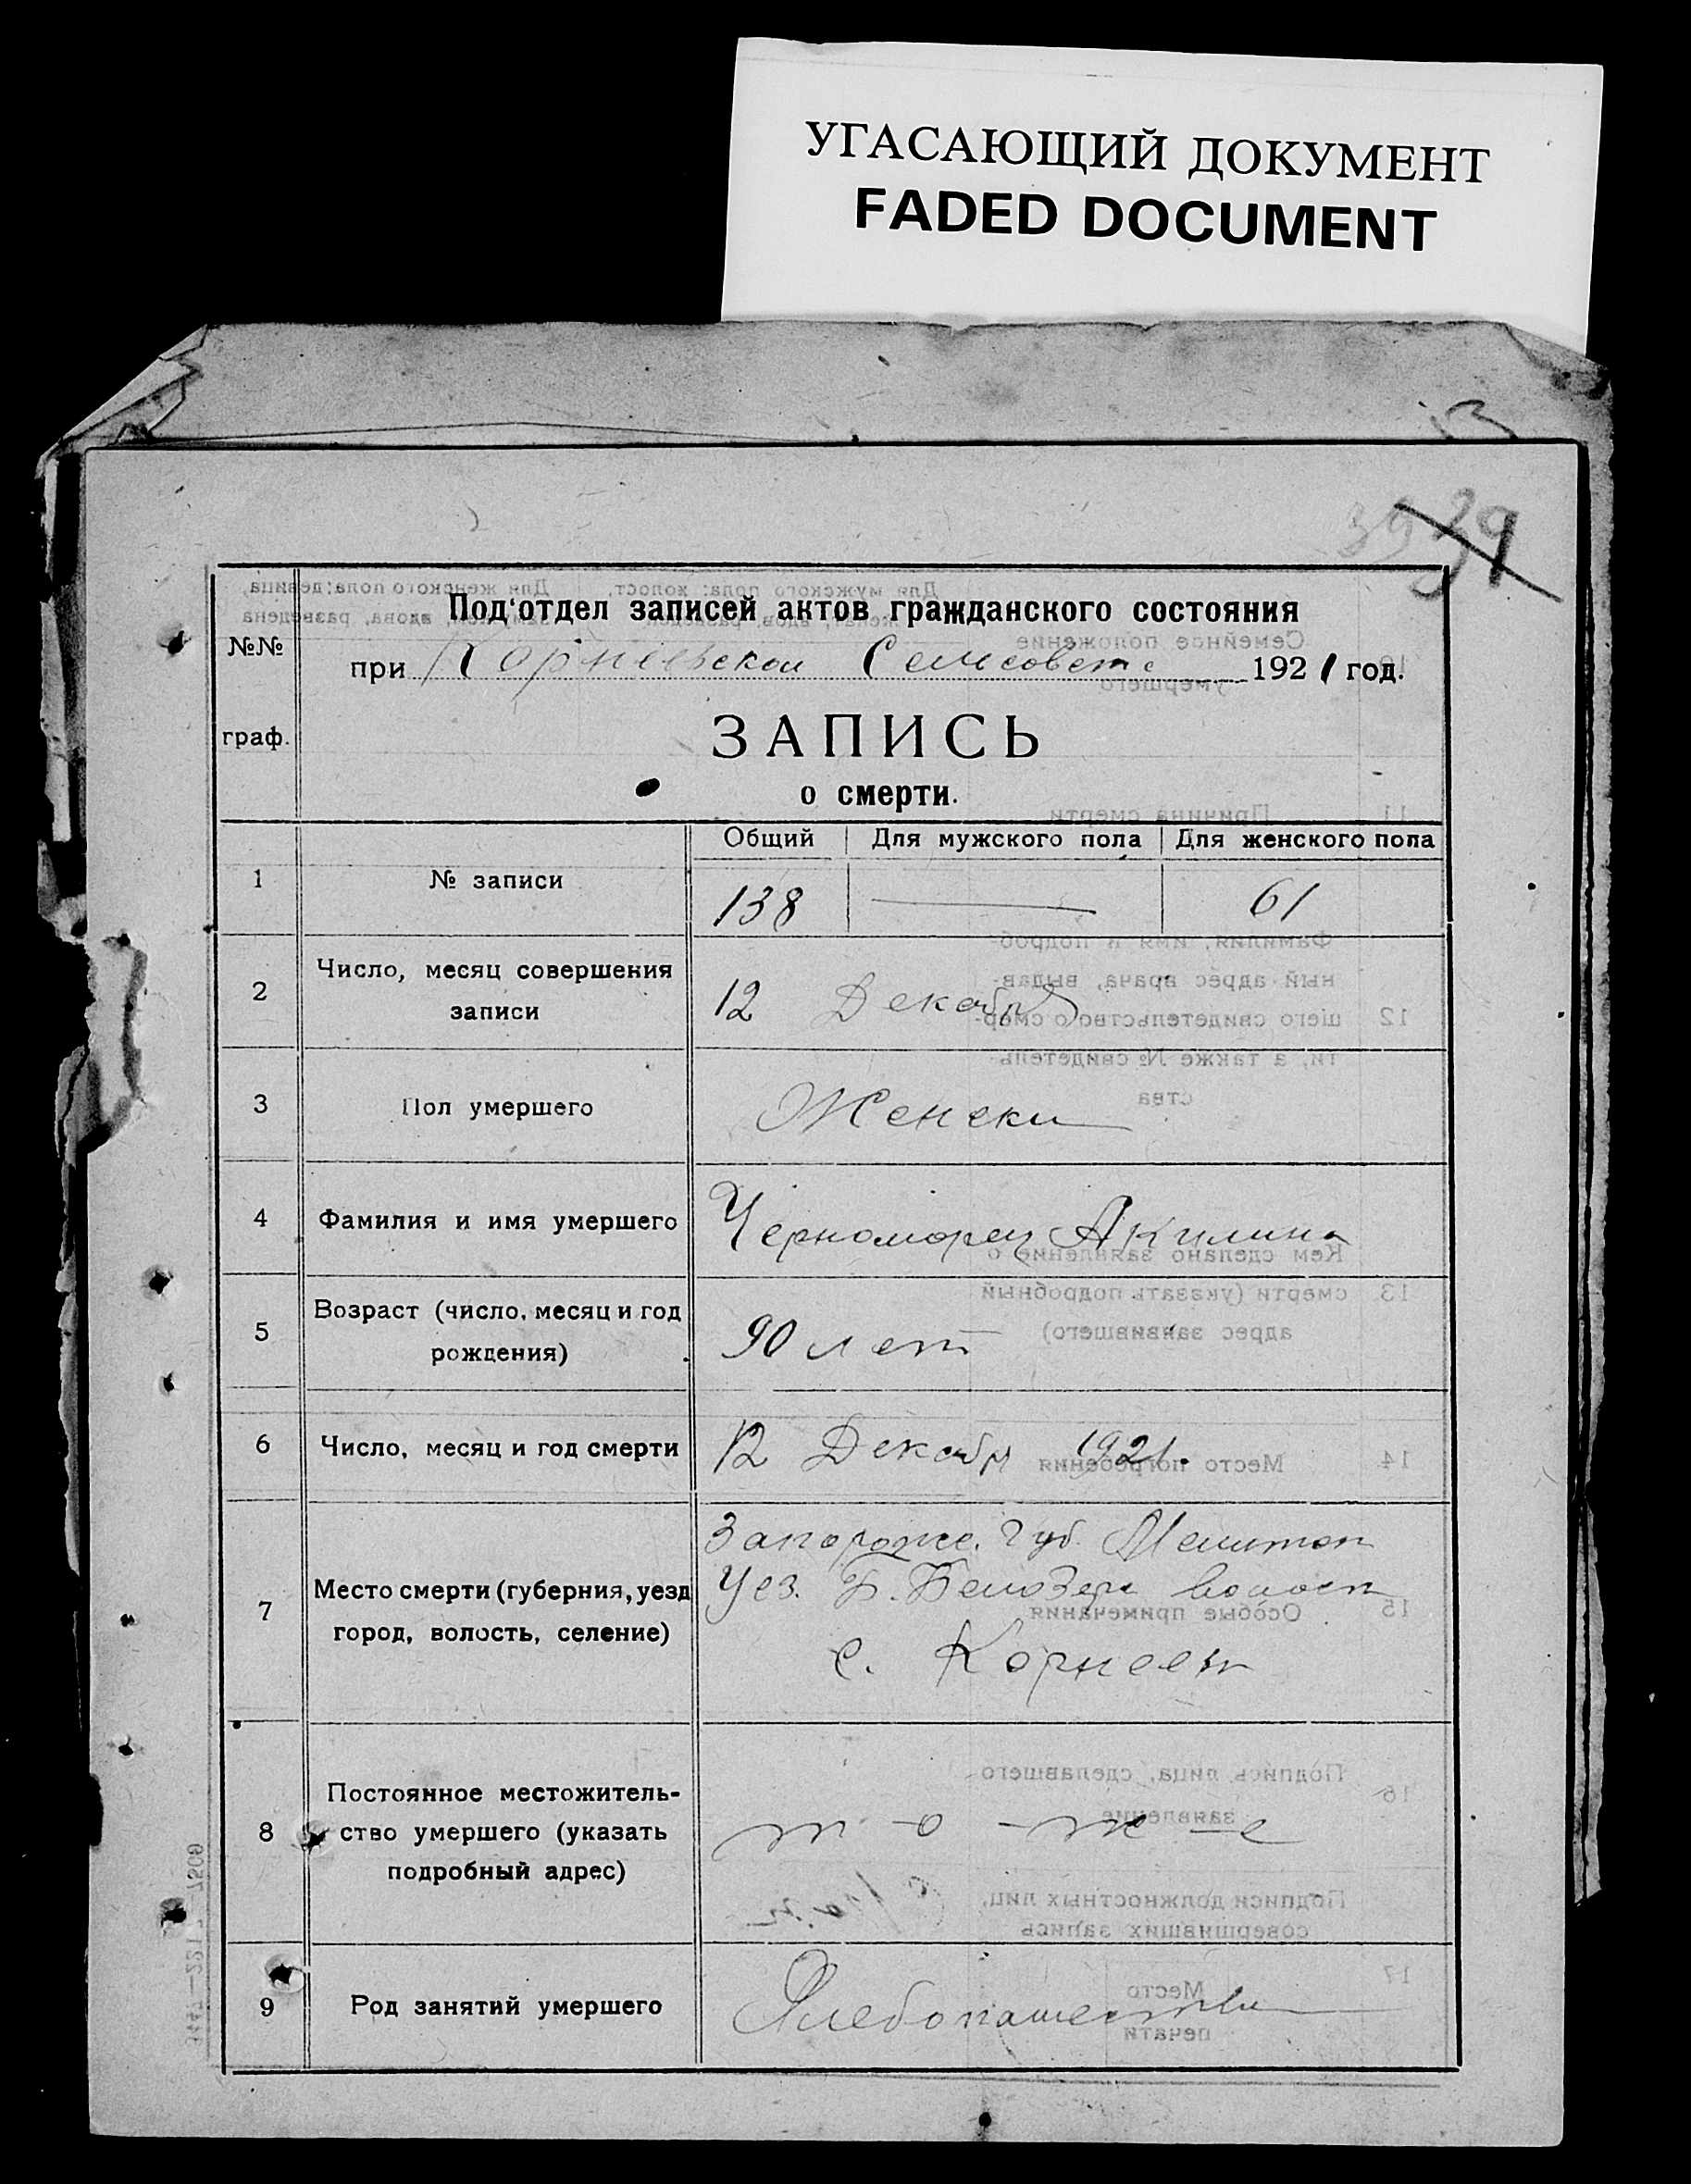 УГАСАЮЩИЙ ДОКУМЕНТ
FADED DOCUMENT
39 39
№№
граф.
Под'отдел записей актов гражданского состояния
при Корнеевском Сельсовете 1921 год.
ЗАПИСЬ
о смерти.
Общий Для мужского пола Для женского пола
1 № записи 138 — 61
2 Число, месяц совершения
записи
12 Декабря
3 Пол умершего Женски
4 Фамилия и имя умершего Черноморец Акилина
5 Возраст (число, месяц и год
рождения)
90 лет
6 Число, месяц и год смерти 12 Декабря 1921.
7 Место смерти (губерния, уезд
город, волость, селение)
Запорож. Губ. Мелитоп
Уез. Б. Белозер волост
с. Корнеев
8 Постоянное местожитель-
ство умершего (указать
подробный адрес)
т-о-ж-е
9 Род занятий умершего Хлебопашество